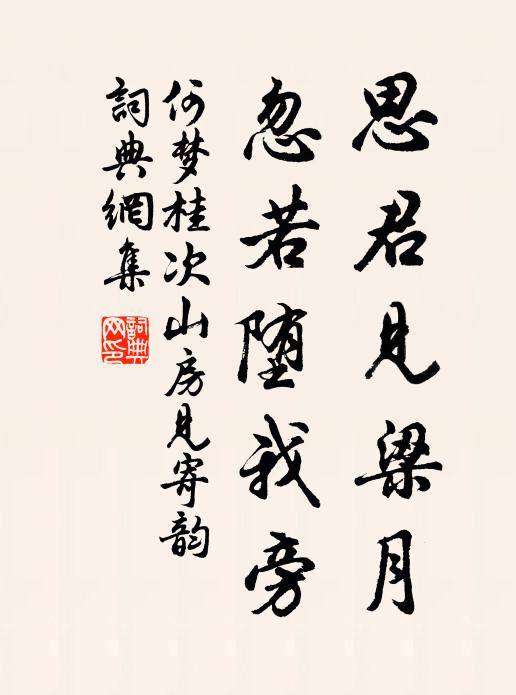 思君見梁月
忽若堕我旁
何梦桂次山房見寄韵
詞典網集
詞典網印